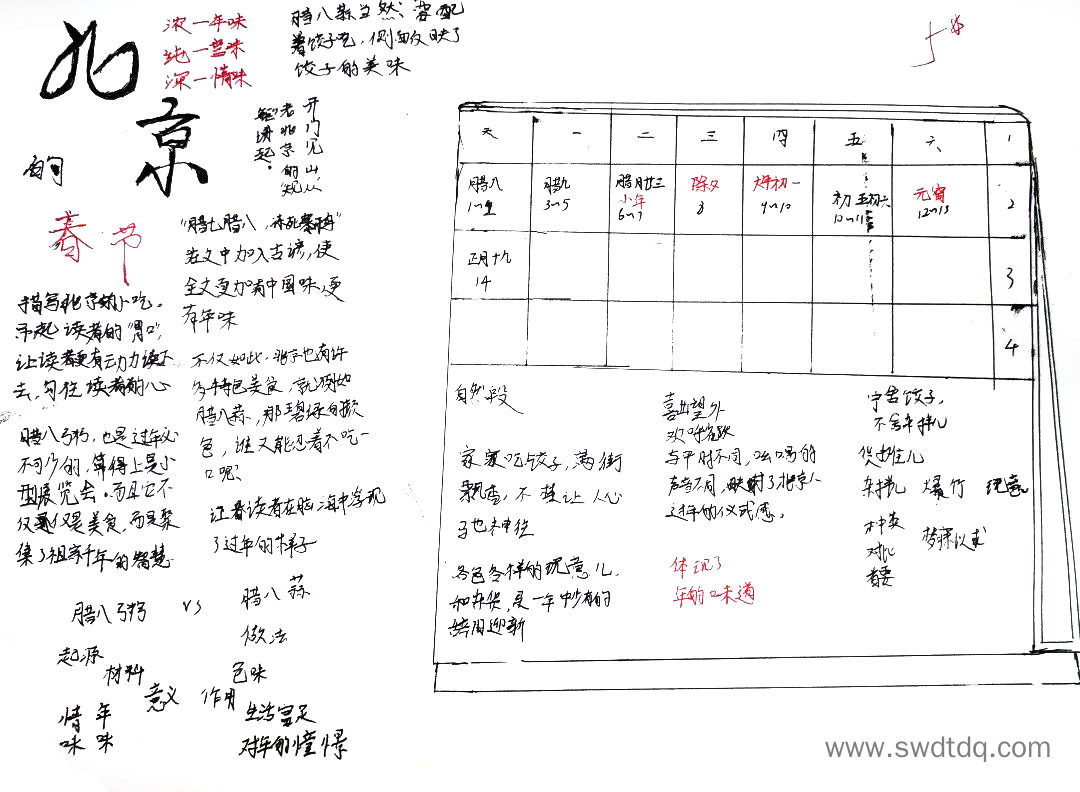 北京
的
春节
浓一年味
纯一营味
深一情味
腊八蒜当然；要配
着饺子吃，侧面反映了
饺子的美味
开门见山从
老北京的规
矩讲起。
"腊七腊八，冻死寒鸦"
在文中加入古谚，使
全文更加有中国味，更
有年味
描写北京的小吃。
吊起读者的"胃口"，
让读者更有动力读下
去，勾住读者的心
不仅如此，北京也有许
多特色美食，就例如
腊八蒜，那碧绿的颜
色，谁又能忍着不吃一
口呢？
让看读者在脑海中浮现
了过年的样子
腊八粥，也是过年必
不可少的，算得上是小
型展览会。而且它不
仅是美食，而是聚
集了祖宗千年的智慧
腊八粥 vs 腊八蒜
起源 做法
材料 色味
意义 作用
情味 年味
生活富足
对年的憧憬
天 一 二 三 四 五 六 1
腊八 腊九 腊月廿三 除夕 大年初一 初五初六 元宵 2
小年
3~5 6~7 8 9~10 10~11 12~13
正月十九 3
14
4
自然段
家家吃饺子，满街
飘香，不禁让人心
各色各样的玩意儿，
和杂货，是一年中少有的
辞旧迎新
喜出望外
欢呼雀跃
与平时不同，吆喝的
声音不同，映射了北京人
过年的仪式感。
体现了
年的味道
宁舍饺子，
不舍车拌儿
爆竹 玩意
种类 梦寐以求
对比